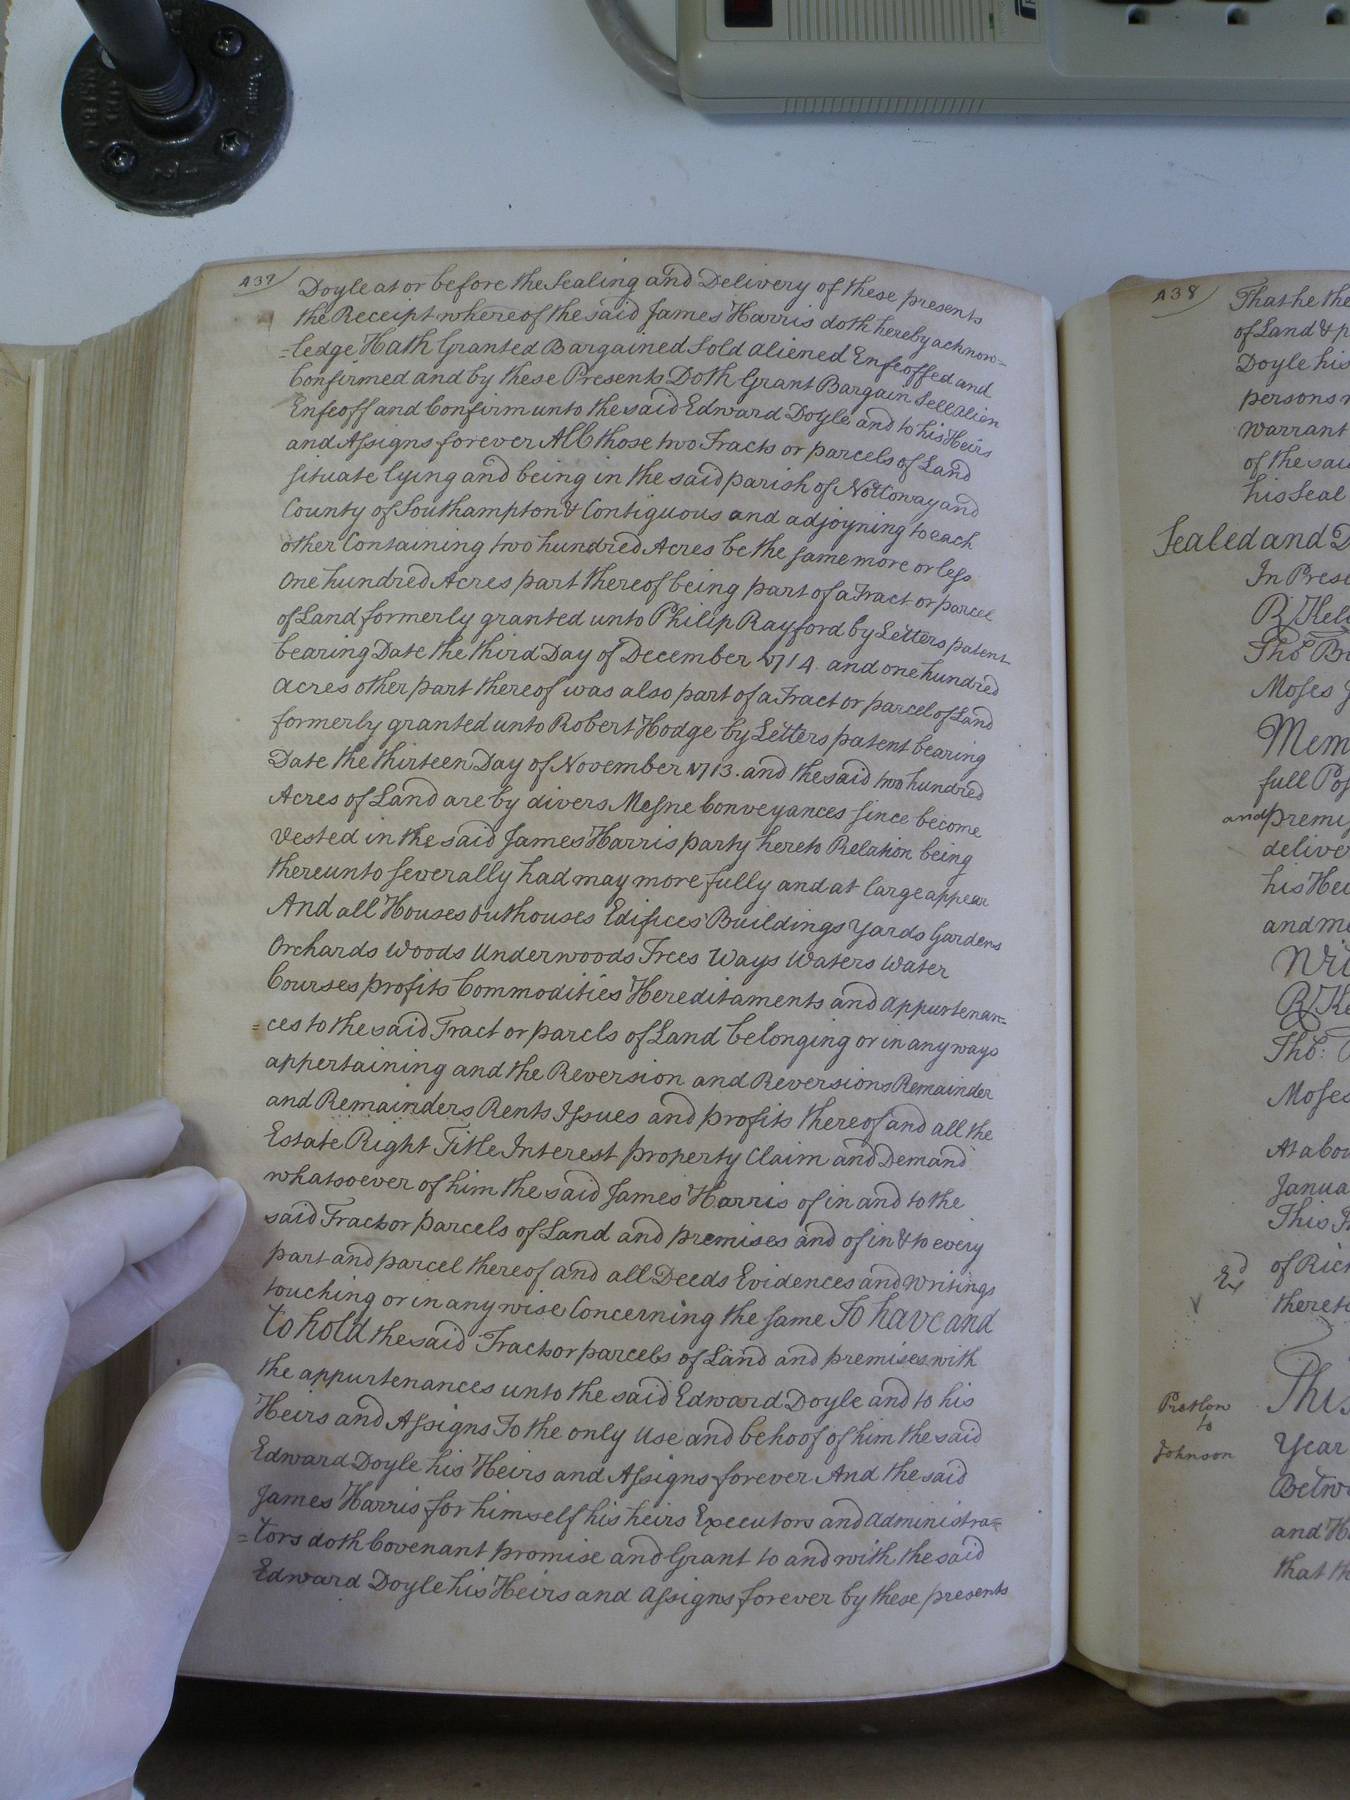 437
Doyle at or before the Sealing and Delivery of these presents
the Receipt whereof the said James Harris doth hereby acknow-
=ledge Hath Granted Bargained Sold aliened Enfeoffed and
Confirmed and by these Presents Doth Grant Bargain Sell alien
Enfeoff and Confirm unto the said Edward Doyle and to his Heirs
and Assigns forever All those two Tracts or parcels of Land
situate lying and being in the said parish of Nottoway and
County of Southampton & Contiguous and adjoyning to each
other Containing two hundred Acres be the same more or less
One hundred Acres part thereof being part of a Tract or parcel
of Land formerly granted unto Philip Rayford by Letters patent
bearing Date the third Day of December 1714. and one hundred
acres other part thereof was also part of a Tract or parcel of Land
formerly granted unto Robert Hodge by Letters patent bearing
Date the thirteen Day of November 1713. and the said two hundred
Acres of Land are by divers Mesne Conveyances since become
Vested in the said James Harris party hereto Relation being
thereunto severally had may more fully and at large appear
And all Houses Outhouses Edifices Buildings Yards Gardens
Orchards Woods Underwoods Trees Ways Waters Water
Courses profits Commodities Hereditaments and appurtenan=
=ces to the said Tract or parcls of Land belonging or in any ways
appertaining and the Reversion and Reversions Remainder
and Remainders Rents Issues and profits thereof and all the
Estate Right Title Interest property Claim and Demand
whatsoever of him the said James Harris of in and to the
said Tract or parcels of Land and premises and of in & to every
part and parcel thereof and all Deeds Evidences and Writings
touching or in any wise Concerning the same To have and
to hold the said Tract or parcels of Land and premises with
the appurtenances unto the said Edward Doyle and to his
Heirs and Assigns To the only Use and behoof of him the said
Edward Doyle his Heirs and Assigns forever And the said
James Harris for himself his heirs Executors and administra=
=tors doth Covenant promise and Grant to and with the said
Edward Doyle his Heirs and assigns forever by these presents
438
That he the
of Land &
Doyle his
persons
Warrant
of the
his Seal
Sealed and
In
Moses
full
and
his
and
Moses
At
This
of
Preston
to
Johnson
This
Year
and
that